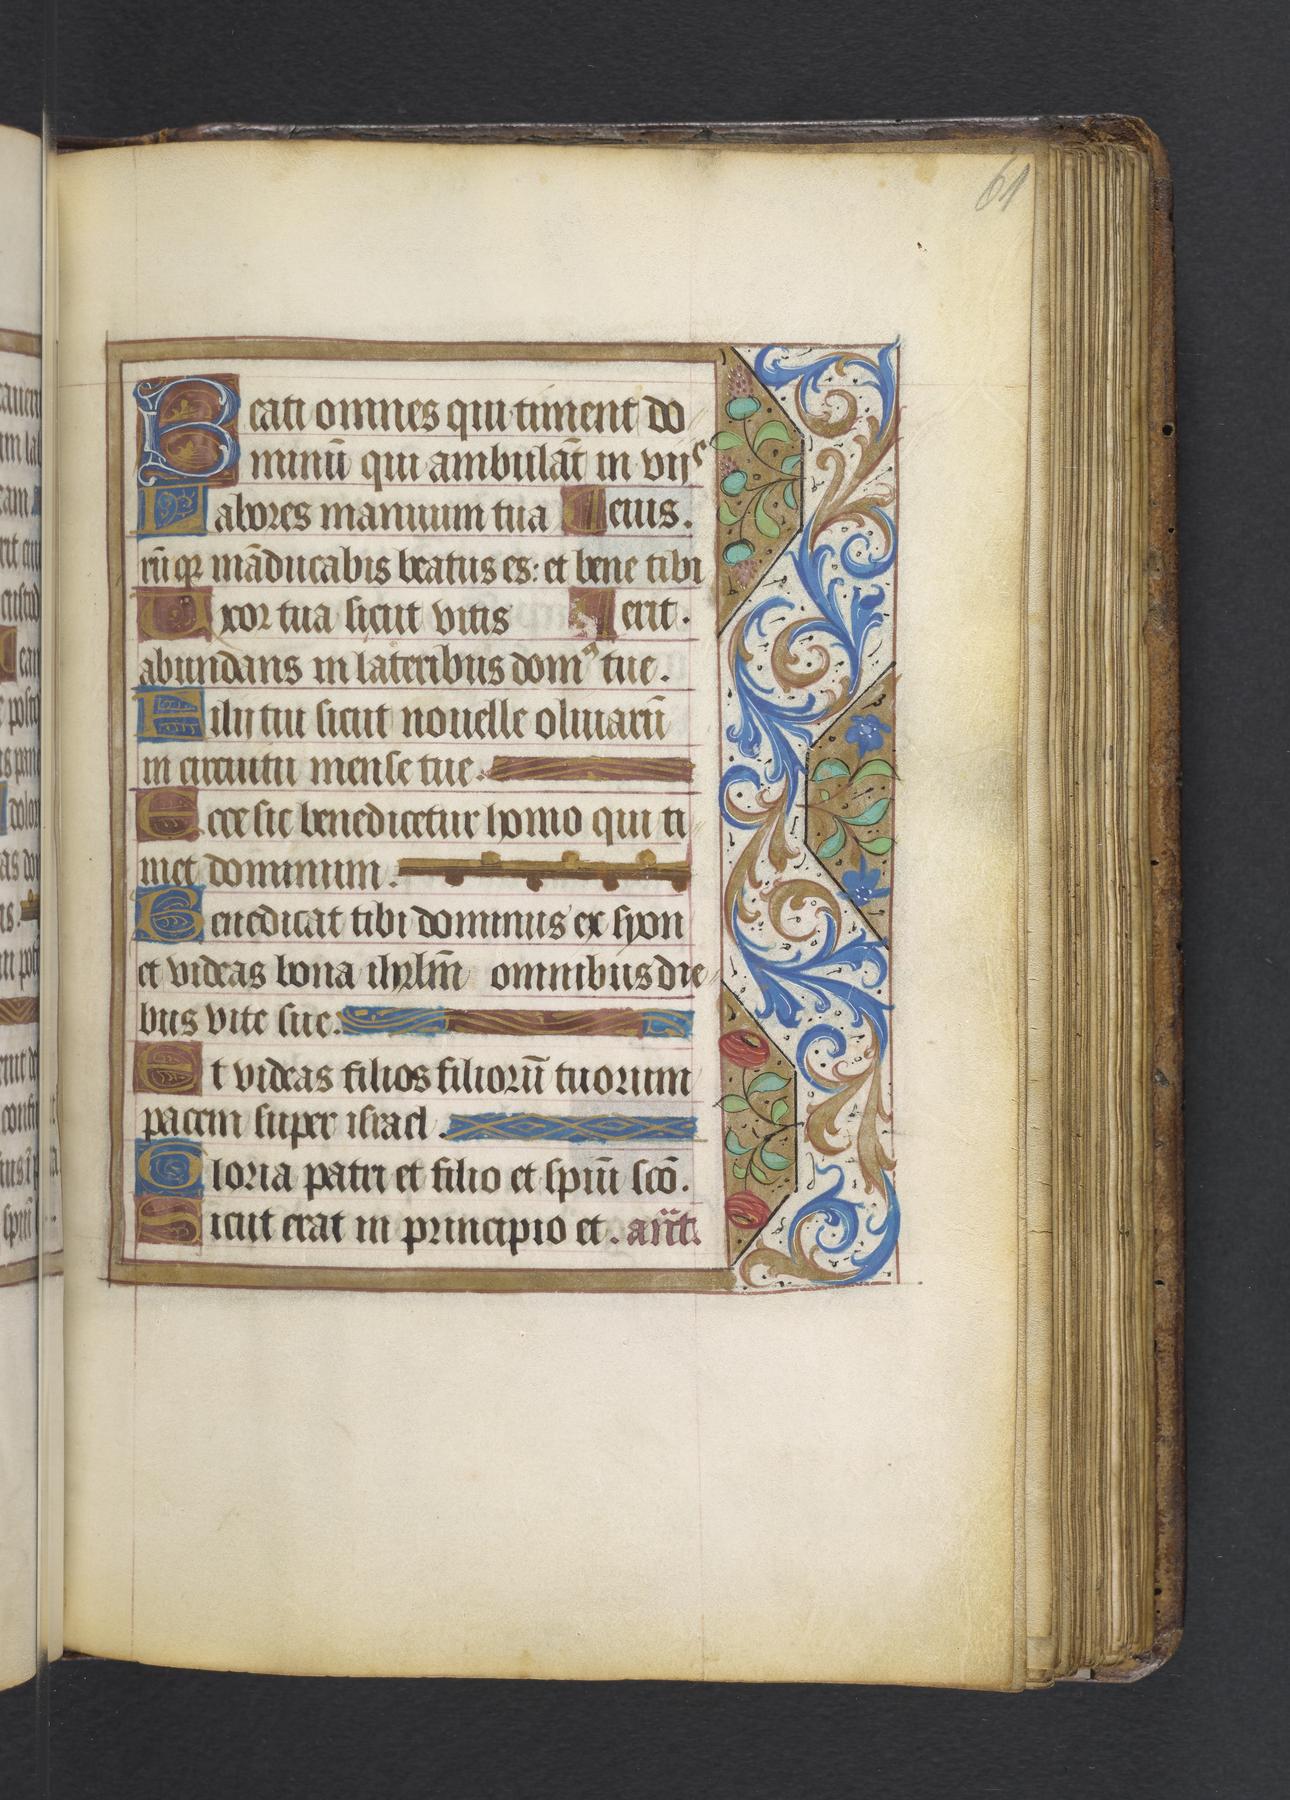 61
Beati omnes qui timent do
minū qui ambulāt in viis
Labores manuum tua ¶ eius.
rū qꝫ māducabis beatus es: et bene tibi
Uxor tua sicut vitis ¶ erit.
abundans in lateribus domꝰ tue.
Filii tui sicut nouelle oliuarū
in circuitu mense tue.
Ecce sic benedicetur homo qui ti
met dominum.
Benedicat tibi dominus ex syon
et videas bona ihrlm̄ omnibus die
bus vite sue.
Et videas filios filiorū tuorum
pacem super israel.
Gloria patri et filio et spiū scō.
Sicut erat in principio et. añt.